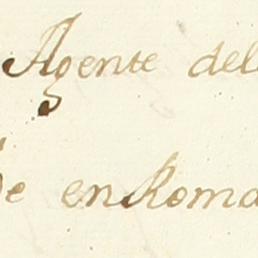 Agente del
de en Roma